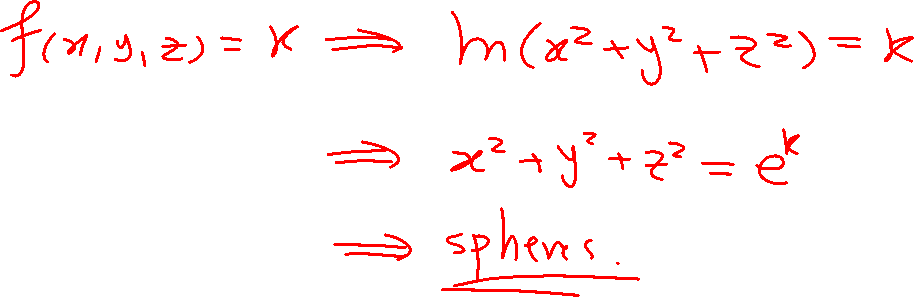 f(x,y,z) = k ⟹ ln(x²+y²+z²) = k
⟹ x²+y²+z² = eᵏ
⟹ spheres.